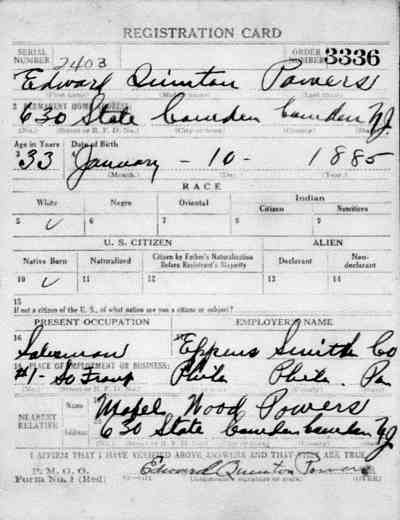 REGISTRATION CARD
SERIAL NUMBER 2403 ORDER NUMBER 3336
Edward Quinton Powers
(First name) (Middle name) (Last name)
2 PERMANENT HOME ADDRESS:
630 State Camden Camden NJ.
(No.) (Street or R. F. D. No.) (City or town) (County) (State)
Age in Years Date of Birth
33 January - 10 - 1885
(Month.) (Day.) (Year.)
RACE
White Negro Oriental Indian
Citizen Noncitizen
5 ✓ 6 7 8 9
U. S. CITIZEN ALIEN
Native Born Naturalized Citizen by Father's Naturalization Before Registrant's Majority Declarant Non-declarant
10 ✓ 11 12 13 14
15
If not a citizen of the U. S., of what nation are you a citizen or subject?
PRESENT OCCUPATION EMPLOYER'S NAME
16 Salesman 17 Smith Co
PLACE OF EMPLOYMENT OR BUSINESS:
#1 - So Front Phila Phila. Pa
NEAREST RELATIVE Name Mabel Wood Powers
Address 630 State Camden Camden NJ
I AFFIRM THAT I HAVE VERIFIED ABOVE ANSWERS AND THAT THEY ARE TRUE
P. M. G. O.
Form No. 1 (Red) Edward Quinton Powers
(Registrant's signature or mark) (OVER)